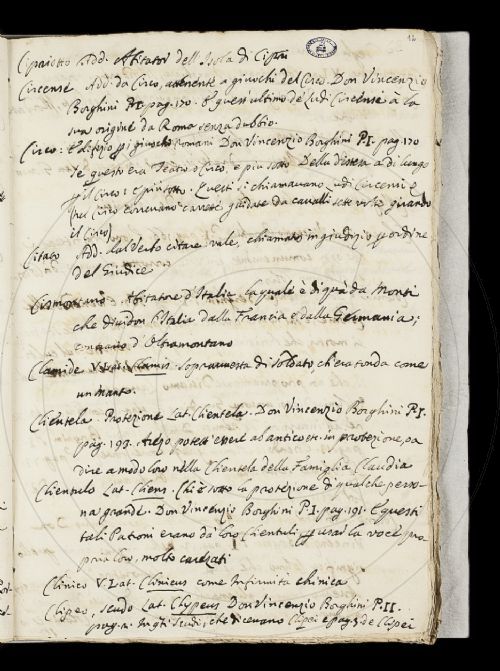 12
Cipriotto Add. Abitator dell'Isola di Cipri
Circense Add. da Circo, attenente a giuochi del Circo. Don Vincenzio
Borghini P.I. pag. 170. E quest'ultimo de' ludi Circensi à la
sua origine da Roma senza dubbio.
Circo. Edifizio p i giuochi Romani Don Vincenzio Borghini P.I. pag. 170
Se questo era Teatro o Circo, e più sotto Della distesa a di lungo
il Circo: e più sotto. Questi si chiamavano Ludi Circensi e
nel Circo correvano carrette guidate da cavalli sette volte girando
il Circo
Citato Add. dal Verbo citare. vale, chiamato in giudizio p ordine
del Giudice
Cismontano. Abitatore d'Italia, la quale è di quà da Monti
che dividon l'Italia dalla Francia e dalla Germania;
contrario d'Oltramontano
Clamide V. Lat. Clamis Sopravvesta di Soldato ch'era tonda come
un manto.
Clientela. Protezione Lat. Clientela. Don Vincenzio Borghini P.I.
pag. 193. Arezo potett' essere ab antico etc. in protezione, o a
dire a modo loro nella Clientela della Famiglia Claudia
Clientulo Lat. Cliens. Chi è sotto la protezione di qualche perso-
na grande. Don Vincenzio Borghini P.I. pag. 191. E questi
tali Patroni erano da loro Clientuli p usar la voce pro-
pria loro, molto carezzati
Clinico V. Lat. Clinicus come Infirmità chinica
Clipeo, Scudo Lat. Clypeus Don Vincenzio Borghini P.II.
pag. 2. In gti Scudi, che dicevano Clipei e pag. 3 de Clipei